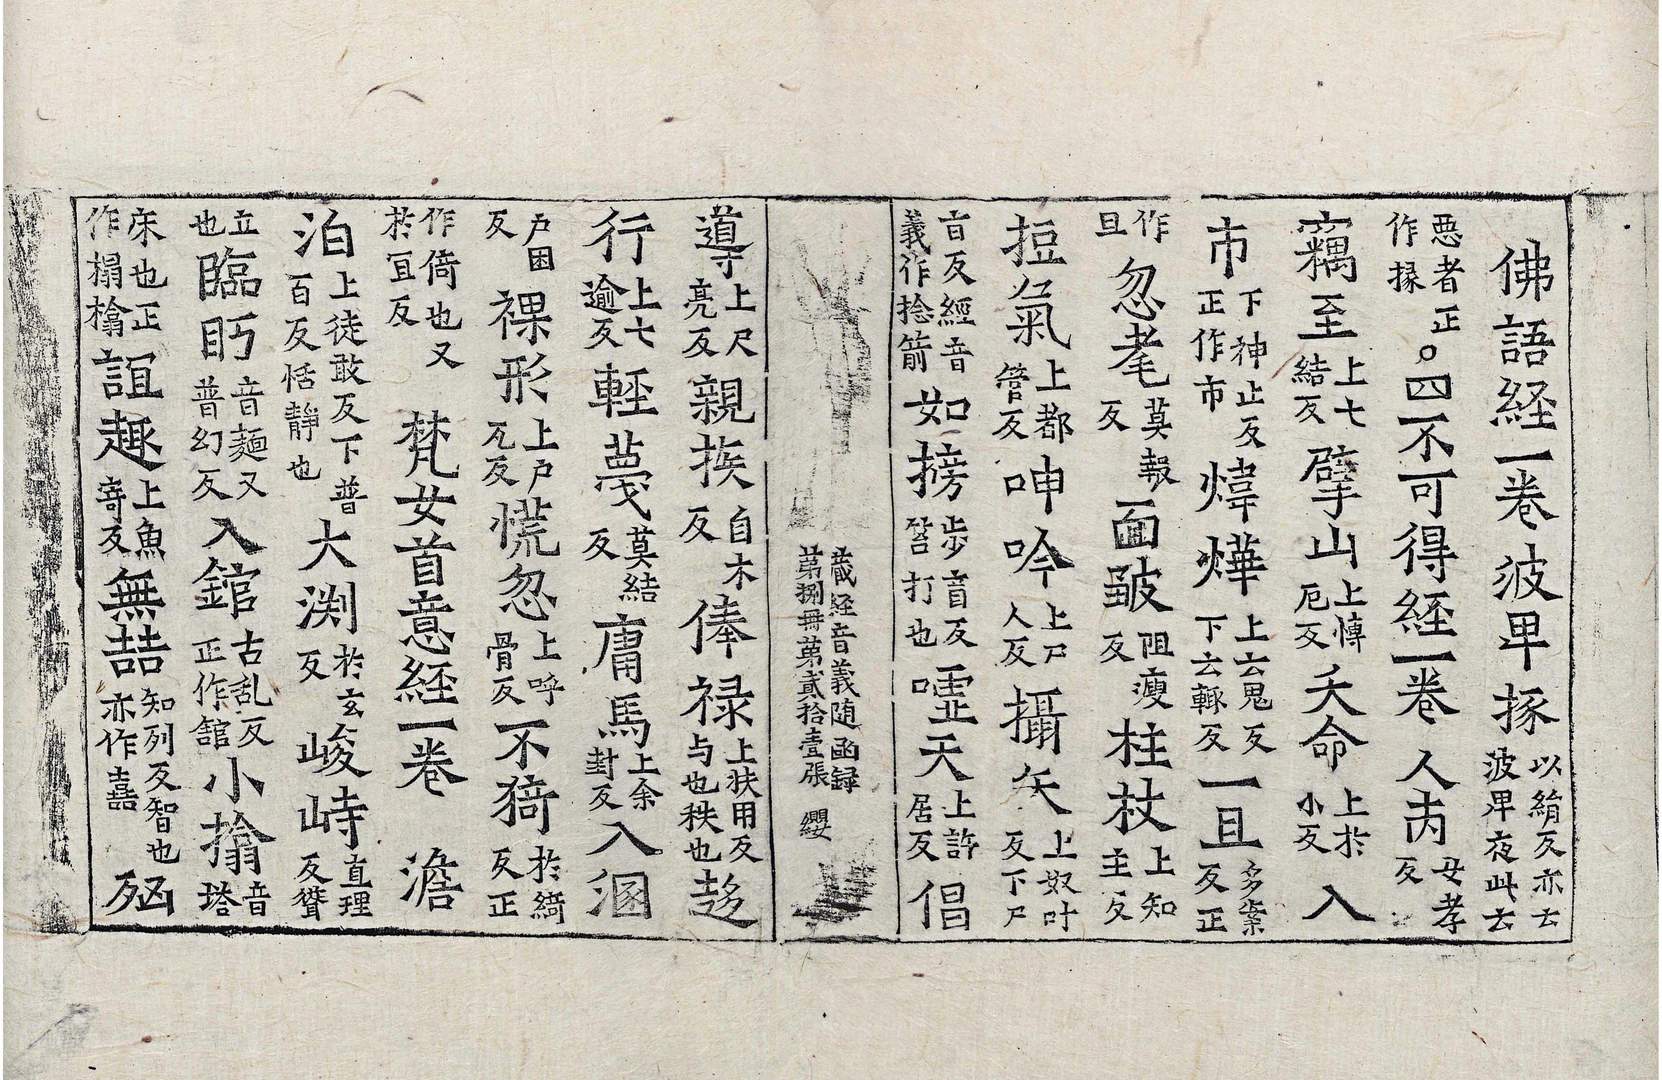 佛語経一卷波卑掾以絹反亦云波卑夜此云
惡者正作掾。四不可得経一卷人芮女孝反
竊至上七結反擘山上博厄反夭命上於小反入
市下神止反正作市煒燁上云鬼反下云輒反一且多案反正
作旦忽耄莫報反面皺阻瘦反柱杖上知主反
挋氣上都管反呻吟上尸人反攝矢上奴叶反下尸
旨反經音義作捻箭如搒步盲反笞打也嘘天上許居反倡
藏経音義随函録
第捌冊第貳拾壹張 纓
導上尺亮反親族自木反俸禄上扶用反与也秩也趍
行上七逾反輕蔑莫結反庸馬上余封反入溷
戶困反裸形上户瓦反慌忽上呼骨反不猗於綺反正
作倚也又於宜反 梵女首意経一卷 澹
泊上徒敢反下普百反恬靜也大渕於玄反峻峙直理反
立也臨眄音麵又普幻反入錧古乱反正作舘小搚音塔
床也正作榻㯓誼趣上魚寄反無喆知列反智也亦作嚞